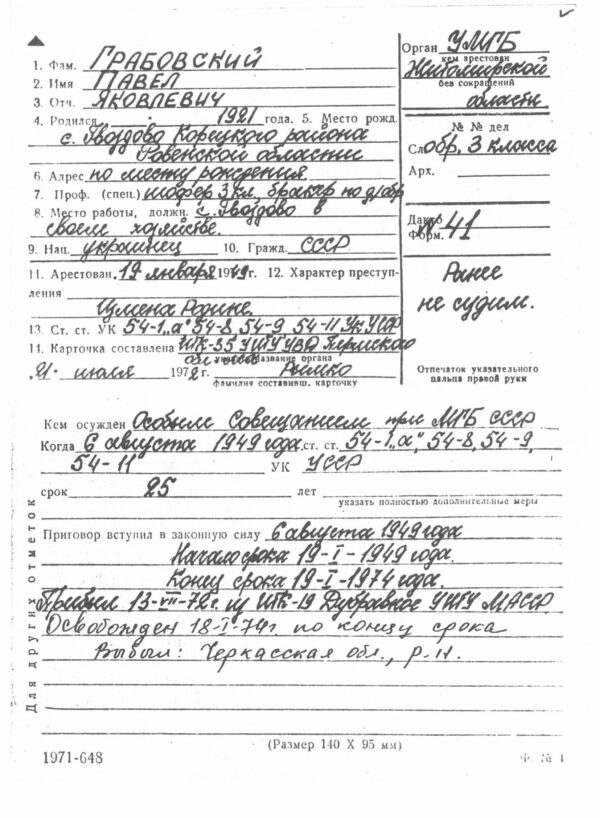 1. Фам. ГРАБОВСКИЙ
2. Имя ПАВЕЛ
3. Отч. ЯКОВЛЕВИЧ
4. Родился 1921 года. 5. Место рожд.
с. Гвоздово Корецкого района
Ровенской области
6. Адрес по месту рождения
7. Проф. (спец.) шофер 3 кл. бракер по д/обр
8. Место работы, должн. с. Гвоздово в
своем хозяйстве.
9. Нац. украинец 10. Гражд. СССР
11. Арестован 19 января 1949 г. 12. Характер преступ-
ления
Измена Родине.
13. Ст. ст. УК 54-1„а" 54-8, 54-9 54-11 УК УССР
11. Карточка составлена ИТК-35 УИТУ УВД Пермской
название органа
21. июля 1972 г.
Фамилия составивш. карточку
Орган УМГБ
кем арестован
Житомирской
без сокращений
области
№ № дел
обр. 3 класса
Арх.
Форм. № 41
Ранее
не судим.
Отпечаток указательного
пальца правой руки
Кем осужден Особым Совещанием при МГБ СССР
Когда 6 августа 1949 года ст. ст. 54-1„а", 54-8, 54-9,
54-11 УК УССР
срок 25 лет
указать полностью дополнительные меры
Приговор вступил в законную силу 6 августа 1949 года
Начало срока 19-I-1949 года.
Конец срока 19-I-1974 года.
Прибыл 13-VII-72г. из ИТК-19 Дубравное УИТУ МАССР
Освобожден 18-I-74г. по концу срока
Выбыл: Черкасская обл., р.н.
Для других отметок
(Размер 140 X 95 мм)
1971-648
Ф. № 1